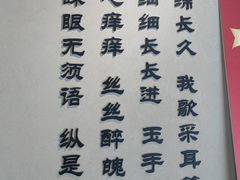 绵长久 我歌采耳
细细长长进 玉手
痒痒 丝丝醉魄
眼无须语 纵是